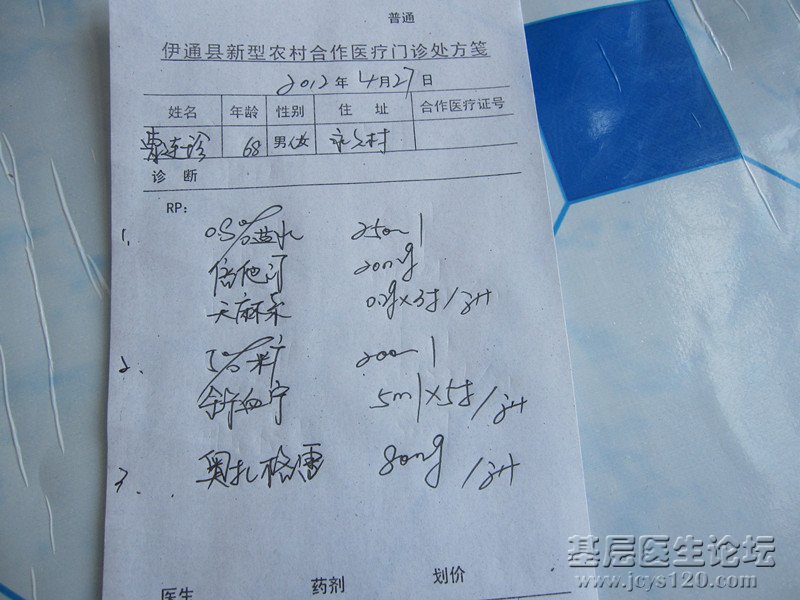 普通
伊通县新型农村合作医疗门诊处方笺
2012年4月27日
姓名 年龄 性别 住 址 合作医疗证号
连珍 68 男/女 村
诊 断
RP:
1. 0.9%盐水 250ml
依他 20mg
天麻素 0.2g×3支/静
2. 5%糖 200ml
舒血宁 5ml×5支/静
3. 奥扎格雷 80mg /静
医生 药剂 划价
基层医生论坛
www.jcys120.com